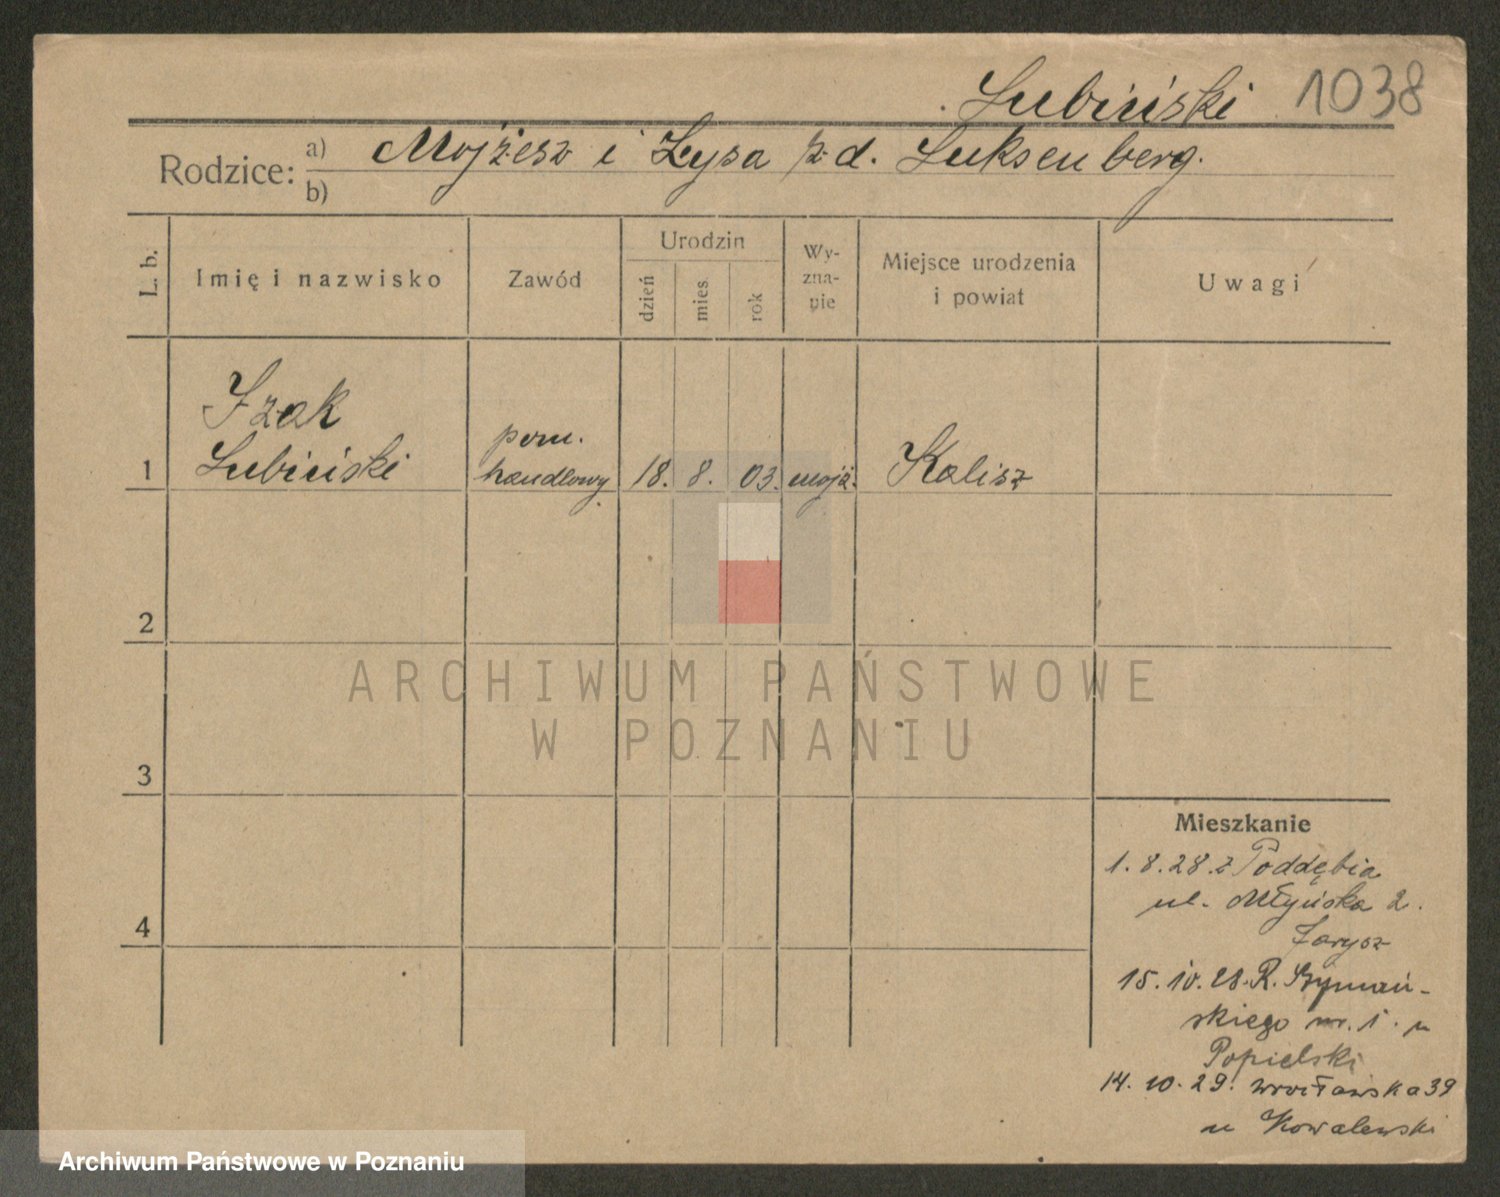 Lubiński 1038
Rodzice: a) Mojżesz i Zysa z d. Luksenberg.
b)
L. b.
Imię i nazwisko
Zawód
Urodzin
dzień
mies.
rok
Wy-
zna-
nie
Miejsce urodzenia
i powiat
Uwagi
Izak
Lubiński
1
pom.
handlowy
18. 8. 03. mojż. Kalisz
2
3
4
ARCHIWUM PAŃSTWOWE
W POZNANIU
Mieszkanie
1. 8. 28. z Poddębia
ul. Młyńska 2.
15. 10. 28. R. Szymań-
skiego nr. 1. u
Popielski
14. 10. 29. Wrocławska 39
u Kowalewski
Archiwum Państwowe w Poznaniu